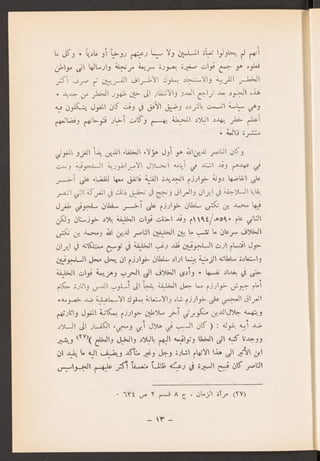 أنهم لم يحاولوا تعبأة المسلمين ولا سيما رعيتهم روحياً أو مادياً • وكل ما
فعلوه هو جمع قوات صغيرة بصورة سريعة مرتجلة وارسالها الى مواطن
الخطر القريبة والاستنجاد بملوك الاطراف القريبين ثم صرف أكثر
هذه الجنود بعد تراجع العدو والانتظار الى حين ظهور الخطر من جديد •
وهي سياسة اتسمت بالتردد وضيق الأفق في وقت كان المغول يشكلون فيه
أعظم خطر يهدد البلاد المحيطة بهم وكانت أخبار فتوحاتهم وفضائعهم
منتشرة ذائعة •
وكان الناصر لدين الله هو أول هؤلاء الخلفاء الذين بدأ الغزو المغولي
في عهدهم وقد اشتد في أيامه انحلال الامبراطورية السلجوقية ونمت
على انقاضها دولة خوارزم الجديدة الفتية فاتفق معها للقضاء على آخر
بقايا السلاجقة في ايران والعراق ونجح في تحقيق ذلك في المعركة التي انتصر
فيها محمد بن تكش سلطان خوارزم على آخر سلطان سلجوقي طغرل
الثاني عام ٥٩٠هـ/١١٩٤م وقد احتلت قوات الخليفة بلاد خوزستان ولكن
الخلاف سرعان ما نشب ما بين الخليفتين الناصر لدين الله ومحمد بن تكش
حول اقتسام ارث السلجوقيين فقد رغب الخليفة في توسيع ممتلكاته في ايران
واستعادة سلطاته الزمنية بينما اراد سلطان خوارزم ان يحل محل السلجوقيين
حتى في بغداد نفسها • وأدى الخلاف الى الحرب وهزيمة قوات الخليفة
أمام جيوش خوارزم مما جعل الخليفة يلجأ الى أسلوب الدس واثارة حكام
العراق العجمي على خوارزم شاه والاستعانة بملوك الاسماعيلية ضد خصومه •
ويتهمه جلال الدين منكوبرتي آخر سلاطين خوارزم بمكاتبة المغول واثارتهم
ضد أبيه بقوله : ( كان السبب في هلاك أبي ومجيء الكفار الى البلاد
ووجدنا كتبه الى الخطا وتواقيعه اليهم بالبلاد والخيل والخلع )(٢٧) ويشير
ابن الأثير الى هذا الاتهام اشارة وجل وغير متأكد ويضيف اليه ما يفيد ان
الناصر كان قبيح السيرة في رعيته ظالماً متعسفاً أكثر عليهم الجواسيس
(٢٧) مرآة الزمان ، ج ٨ قسم ٢ ص ٦٣٤ •
- ١٣ -